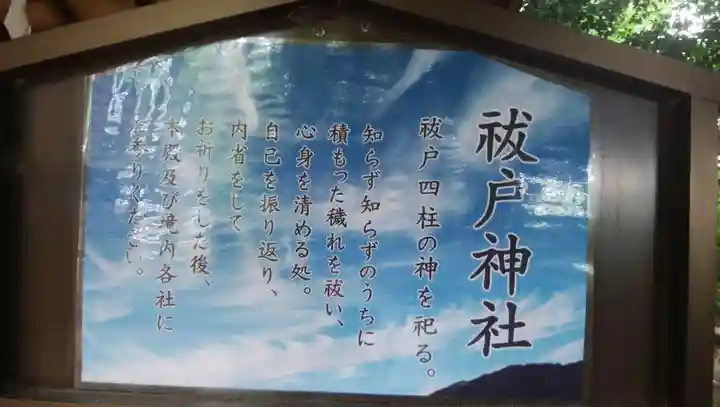 祓戸神社
祓戸四柱の神を祀る。
知らず知らずのうちに
積もった穢れを祓い、
心身を清める処。
自己を振り返り、
内省をして
お祈りをした後、
本殿及び境内各社に
お参りください。